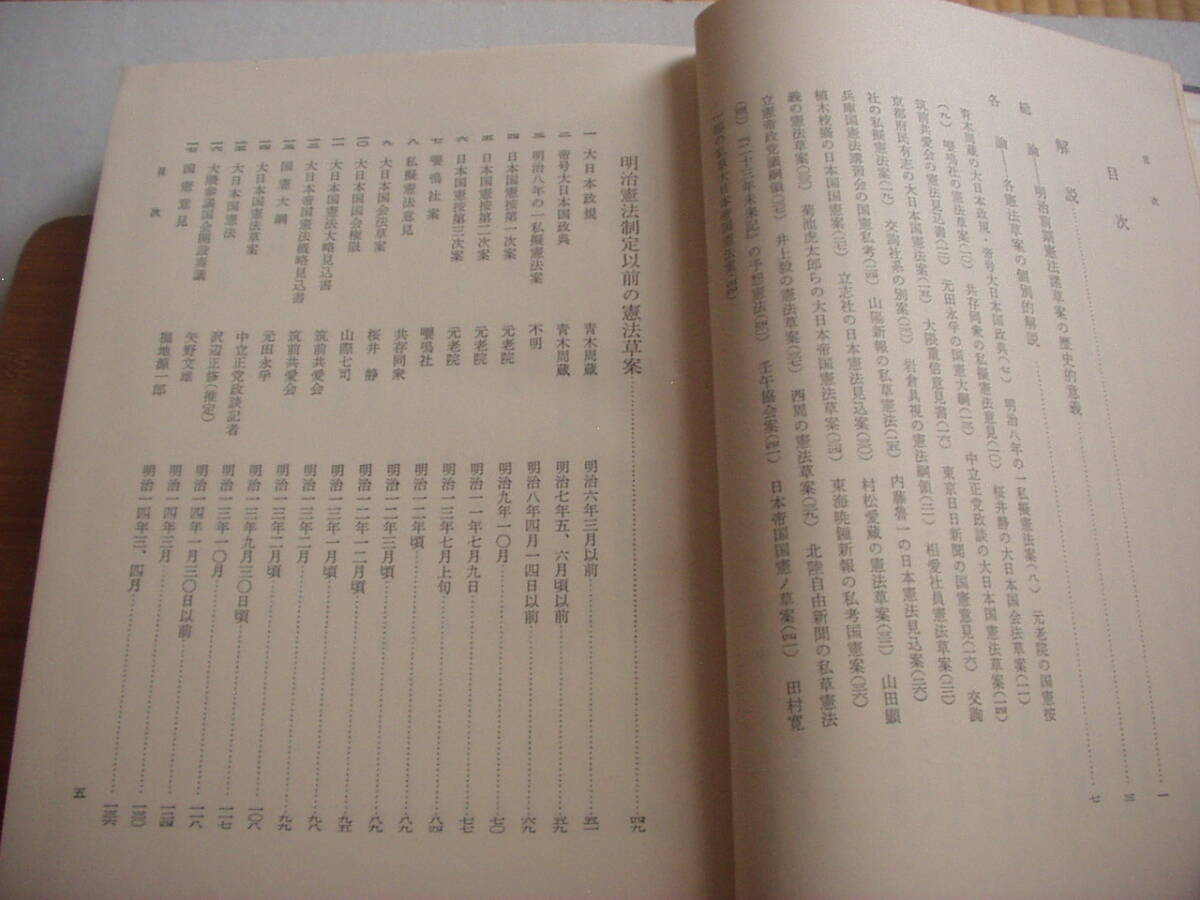 目次
目次
解説
総論――明治前期憲法諸草案の歴史的意義
各論――各憲法草案の個別的解説
青木周蔵の大日本政規・帝号大日本国政典(七) 明治八年の一私擬憲法案(八) 元老院の国憲按
(九) 嚶鳴社の憲法草案(一〇) 共存同衆の私擬憲法意見(一〇) 桜井静の大日本国会法草案(一一)
筑前共愛会の憲法見込書(一二) 元田永孚の国憲大綱(一三) 中立正党政談の大日本国憲法草案(一四)
京都府民有志の大日本国憲法案(一五) 大隈重信意見書(一六) 東京日日新聞の国憲意見(一六) 交詢
社の私擬憲法案(一九) 交詢社系の別案(二一) 岩倉具視の憲法綱領(二一) 相愛社員憲法草案(二三)
兵庫国憲法講習会の国憲私考(二四) 山陽新報の私草憲法(二五) 内藤魯一の日本憲法見込案(二六)
植木枝盛の日本国国憲案(二七) 立志社の日本憲法見込案(三〇) 村松愛蔵の憲法草案(三二) 山田顕
義の憲法草案 菊池虎太郎らの大日本帝国憲法草案(三四) 東海暁鐘新報の私考国憲案(三六)
立憲帝政党議綱領(三七) 井上毅の憲法草案(三七) 西周の憲法草案(三九) 北陸自由新聞の私草憲法
『二十三年未来記』の予想憲法 壬午協会案(四一) 日本帝国国憲ノ草案(四一) 田村寛
一郎の私草大日本帝国憲法案
一
三
七
明治憲法制定以前の憲法草案 四九
一 大日本政規 青木周蔵 明治六年三月以前 五一
二 帝号大日本国政典 青木周蔵 明治七年五、六月頃以前 五九
三 明治八年の一私擬憲法案 不明 明治八年四月一四日以前 六九
四 日本国憲按第一次案 元老院 明治九年一〇月 七〇
五 日本国憲按第二次案 元老院 明治一一年七月九日 七七
六 日本国憲按第三次案 元老院 明治一三年七月上旬 八四
七 嚶鳴社案 嚶鳴社 明治一二年頃 八九
八 私擬憲法意見 共存同衆 明治一二年三月頃 八九
九 大日本国会法草案 桜井 静 明治一二年一二月頃 九五
一〇 大日本国国会権限 山際七司 明治一三年一月頃 九八
一一 大日本国憲法大略見込書 筑前共愛会 明治一三年二月 九九
一二 大日本帝国憲法概略見込書 筑前共愛会 明治一三年二月頃 九九
一三 国憲大綱 元田永孚 明治一三年九月三〇日頃 一〇八
一四 大日本国憲法草案 中立正党政談記者 明治一三年一〇月 一一七
一五 大日本国憲法 沢辺正修(推定) 明治一四年一月三〇日以前 一一八
一六 大隈参議国会開設奏議 矢野文雄 明治一四年三月 一二四
一七 国憲意見 福地源一郎 明治一四年三、四月 一三〇
一三六
目次
五